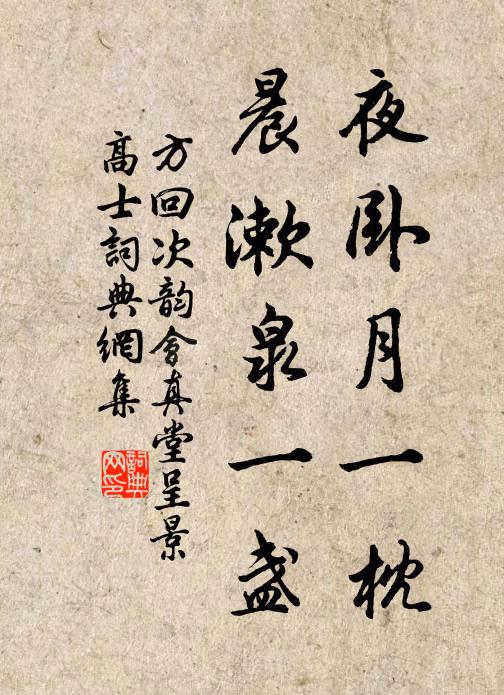 夜卧月一枕
晨漱泉一盏
方回次韵会真堂呈景
高士詞典網集
詞典網印